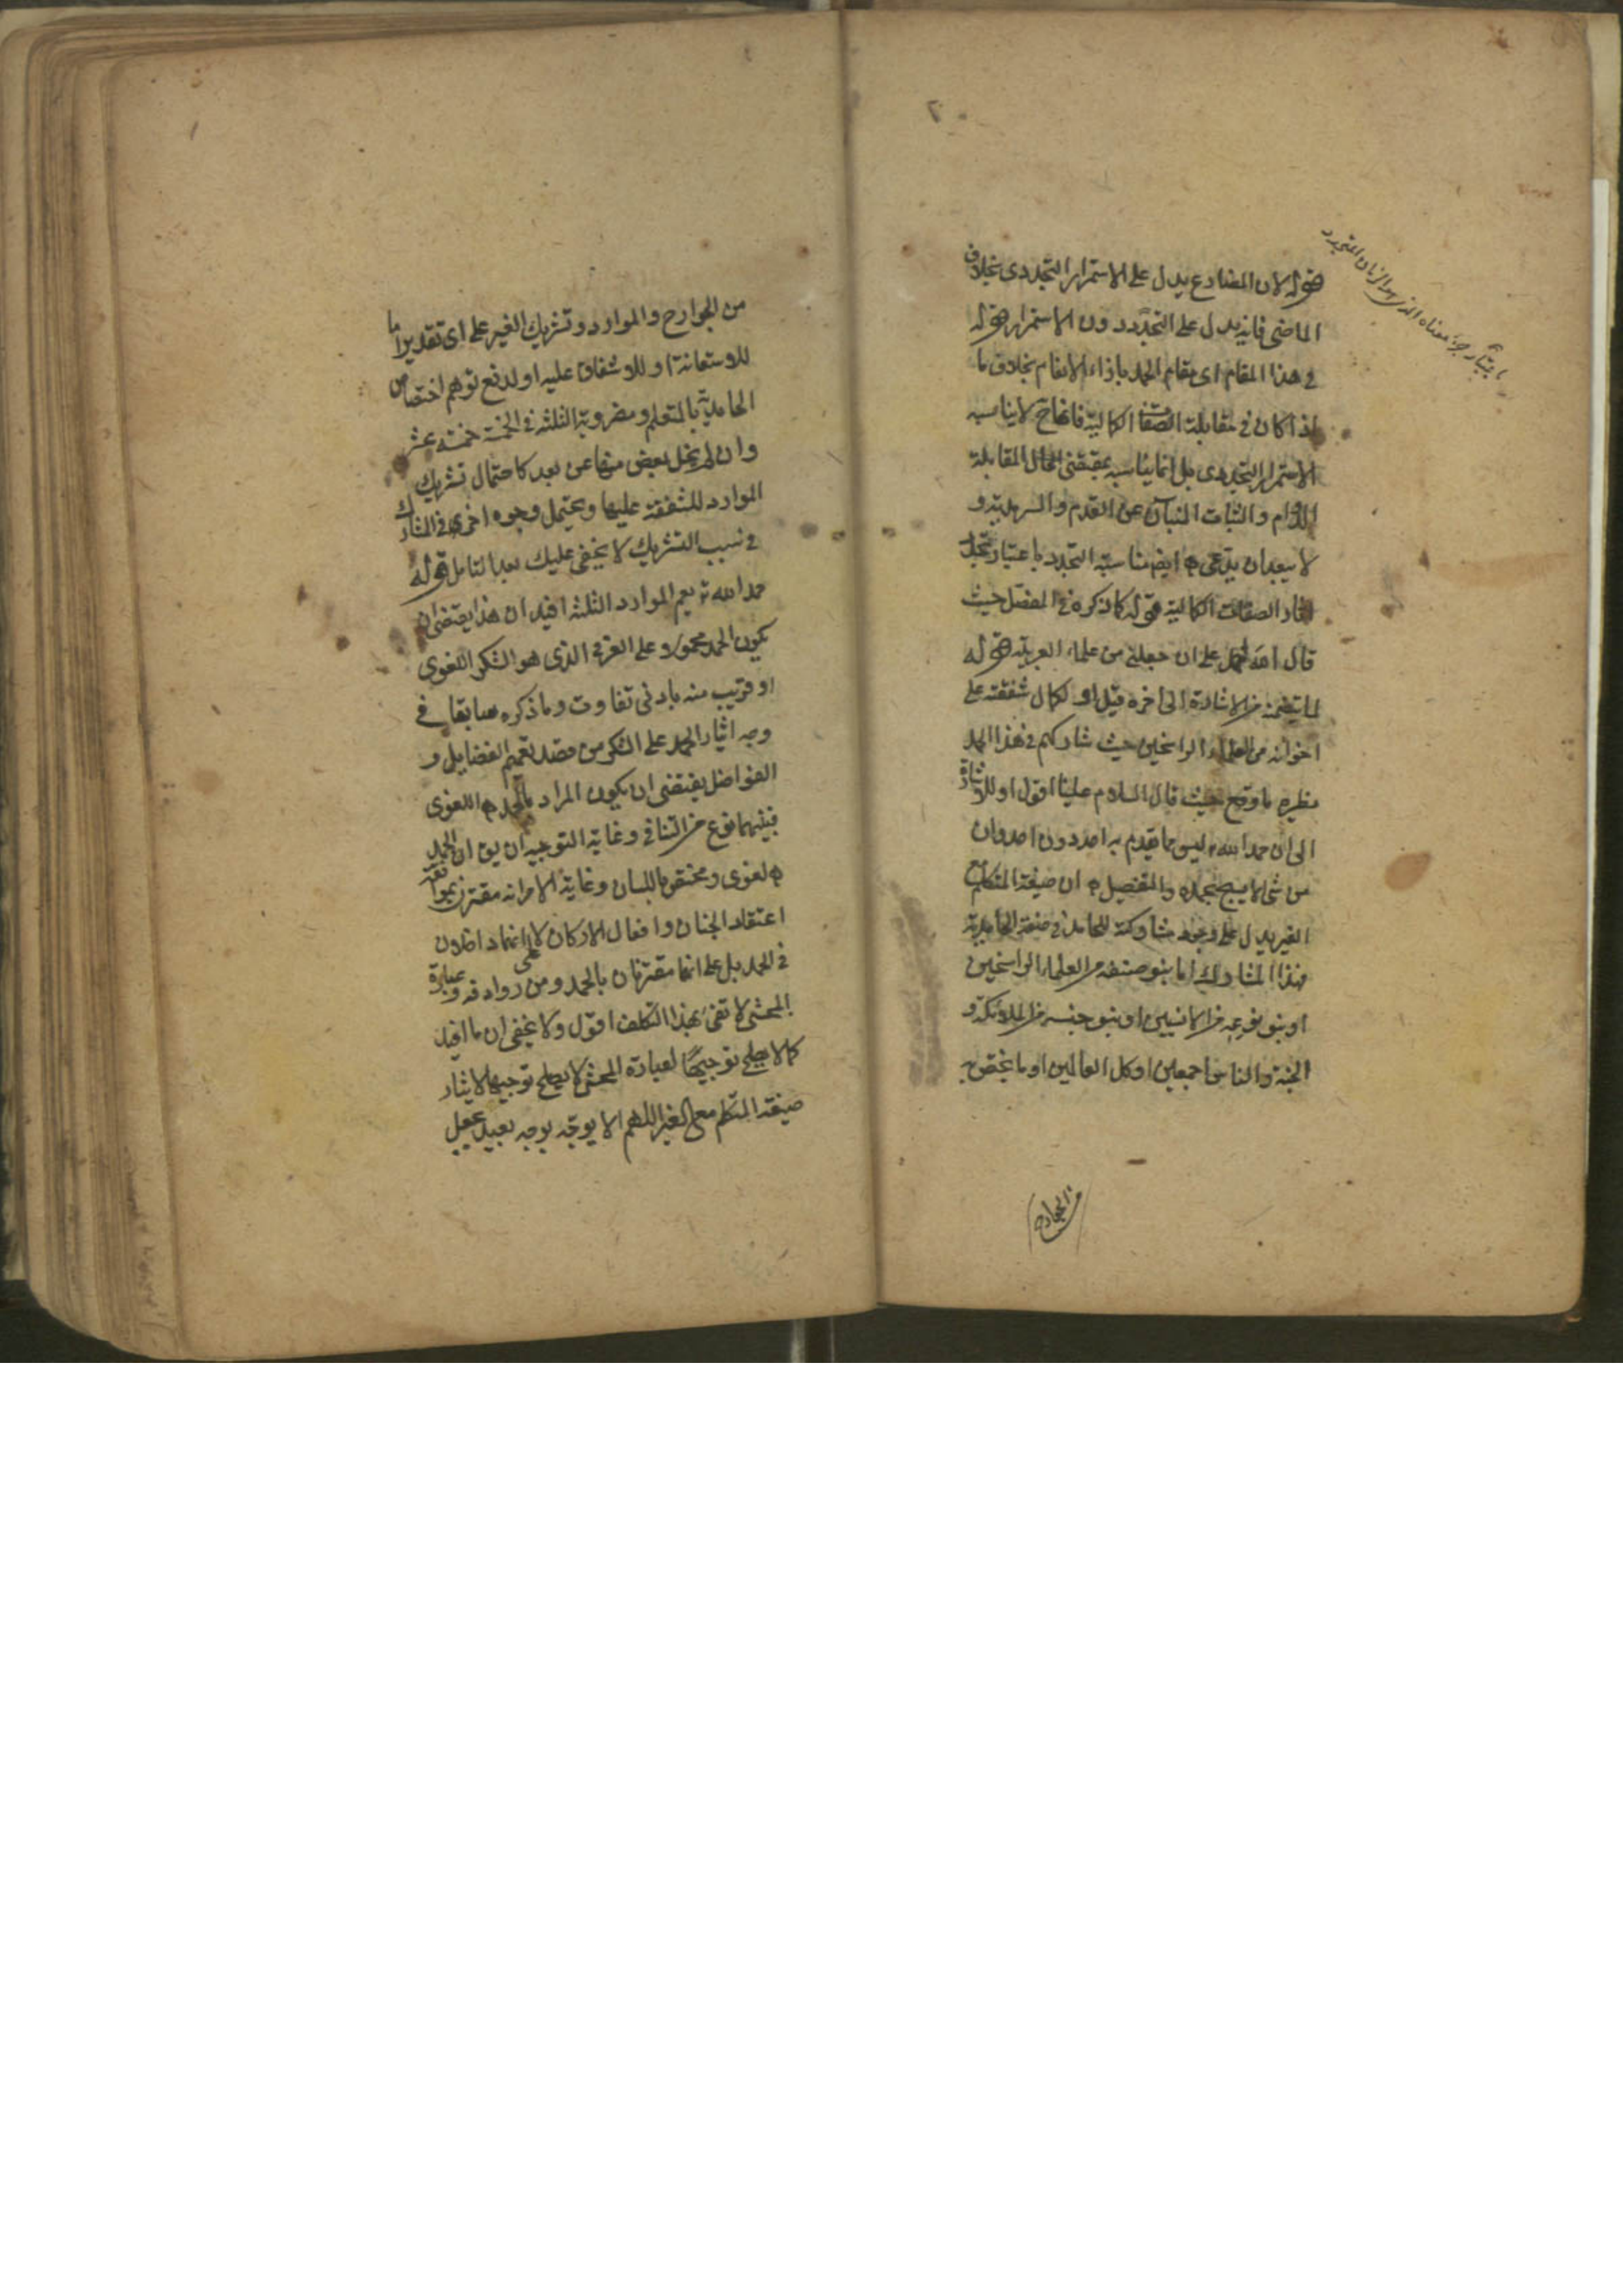 قوله لان المضارع يدل على الاستمرار التجددى بخلاف
الماضى فانه يدل على التجدد دون الاستمرار قوله
فى هذا المقام اى مقام الحمد بازاء الانعام بخلاف ما
اذا كان فى مقابلة الصفات الكمالية فانه ح لا يناسبه
الاستمرار التجددى بل انما يناسبه بمقتضى الحال المقابلة
الدوام والثبات المنبآن عن القدم والسرمدية و
لا يبعد ان يدعى ايض مناسبة التجدد باعتبار تجدد
اثار الصفات الكمالية قوله كما ذكره فى المفصل حيث
قال الله احمد على ان جعلنى من علماء العربية قوله
لما يتضمنه من الاشارة الى اخره قيل او لكمال شفقته على
اخوانه من العلماء الراسخين حيث شاركهم فى هذا الحمد
نظيره ما وقع حيث قال السلام علينا اقول او للاشارة
الى ان حمد الله ليس مما يقدم به احد دون احد وان
من شئ الا يسبح بحمده والتفصيل ان صيغة المتكلم مع
الغير يدل على وجود مشاركة للحامد فى صفة الحامدية
فهذا المشارك اما بنو صنفه من العلماء الراسخين
او بنو نوعه من الانسيين او بنو جنسه من الملائكة و
الجنة والناس اجمعين او كل العالمين او ما يختص به
من الجوارح
من الجوارح والموارد وتشريك الغير على اى تقدير اما
للاستعانة او للاشفاق عليه او لدفع توهم اختصاص
الحامدية بالمتعلم ومضروبة الثلثة فى الخمسة خمسة عشر
وان لم يخل بعض منها عن بعد كاحتمال تشريك
الموارد للشفقة عليها ويحتمل وجوه اخرى فى المشارك
فى سبب التشريك لا يخفى عليك بعد التامل قوله
حمد الله تع يعم الموارد الثلثة افيد ان هذا يقتضى ان
يكون الحمد محمولا على العرفى الذى هو الشكر اللغوى
او قريب منه بادنى تفاوت وما ذكره سابقا فى
وجه ايثار الحمد على الشكر من قصد تعميم الفضايل و
الفواضل يقتضى ان يكون المراد بالحمد اللغوى
فبينهما نوع من التنافى وغاية التوجيه ان يق ان الحمد
لغوى ومختص باللسان وغاية الامر انه مقترن بموافقة
اعتقاد الجنان وافعال الاركان لا على انهما داخلان
فى الحمد بل على انهما مقترنان بالحمد ومن روادفه وعبارة
المحشى لا تفى بهذا التكلف اقول ولا يخفى ان ما افيد
كما لا يصلح توجيها لعبارة المحشى لا يصلح توجيها لايثار
صيغة المتكلم مع الغير اللهم الا يوجه بوجه بعيد